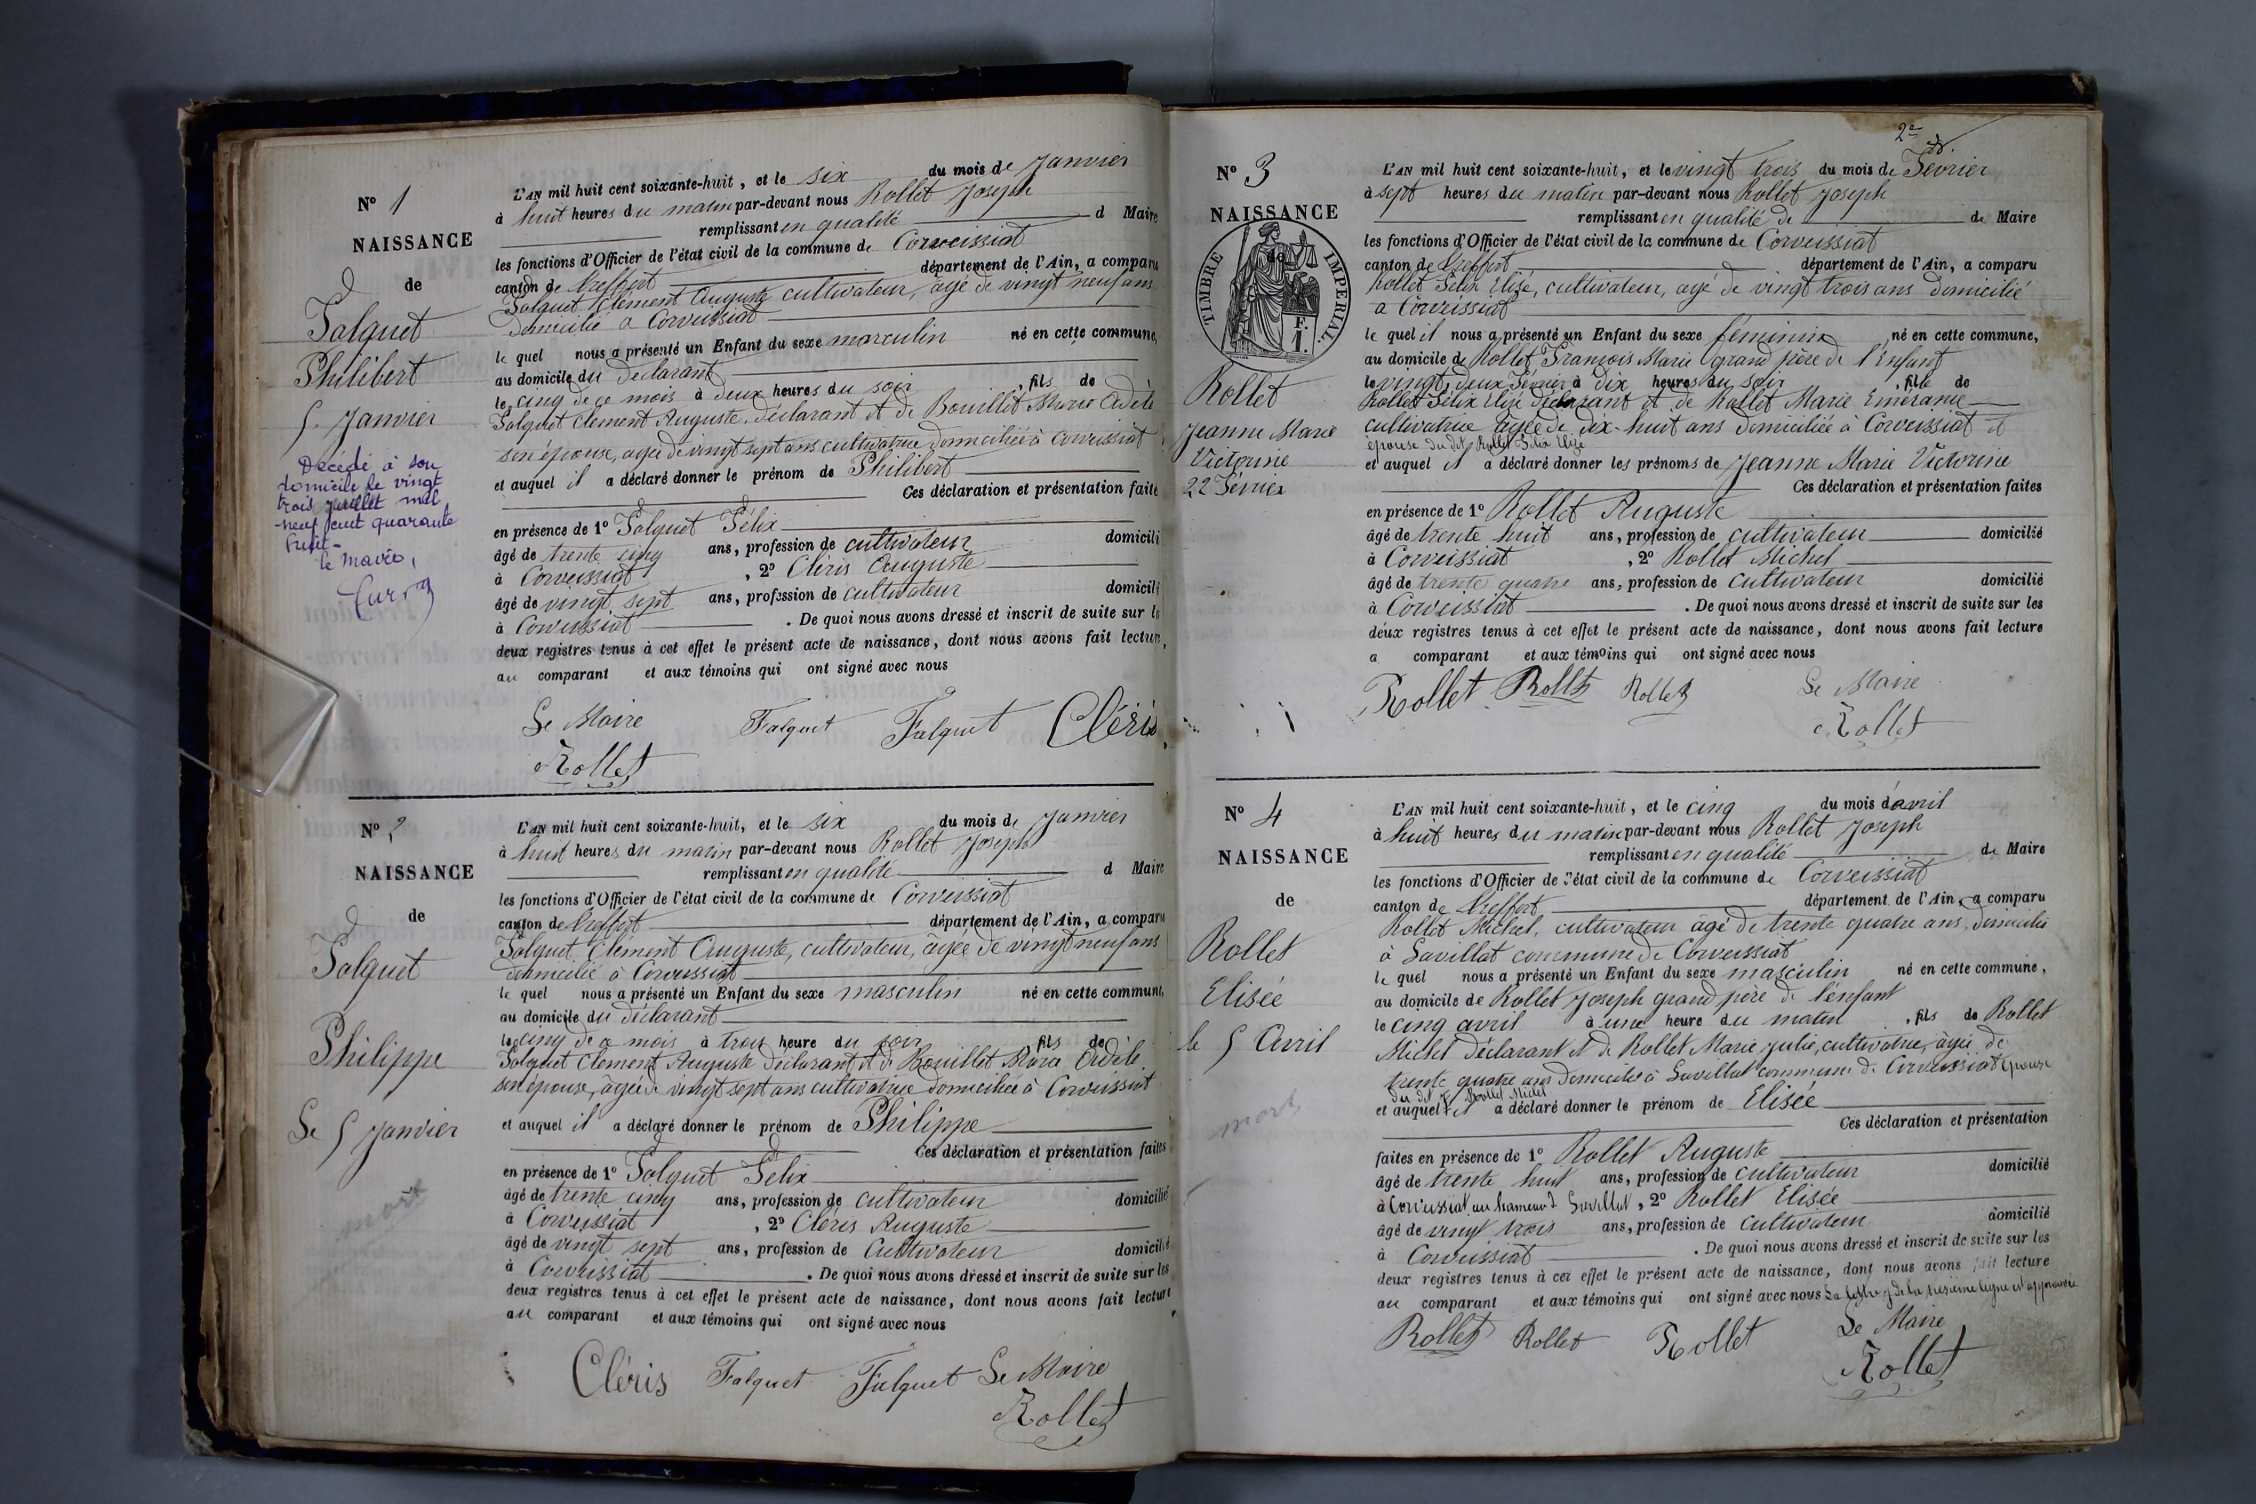 N° 1
NAISSANCE
de
Falquet
Philibert
5 Janvier
Décédé à son
domicile le vingt
trois juillet mil
neuf cent quarante
huit -
le maire,
L'AN mil huit cent soixante-huit, et le six du mois de Janvier
à huit heures du matin par-devant nous Rollet Joseph
remplissant en qualité d Maire
les fonctions d'Officier de l'état civil de la commune de Corveissiat
canton de Treffort département de l'Ain, a comparu
Falquet Clément Auguste cultivateur, agé de vingt neuf ans
domicilié a Corveissiat
le quel nous a présenté un Enfant du sexe masculin né en cette commune,
au domicile du déclarant
le cinq de ce mois à deux heures du soir, fils de
Falquet Clement Auguste, déclarant et de Bouillet Marie Adèle
son épouse, agée de vingt sept ans cultivatrice domiciliée à Corveissiat
et auquel il a déclaré donner le prénom de Philibert
Ces déclaration et présentation faite
en présence de 1° Falquet Félix
âgé de trente cinq ans, profession de cultivateur domicili
à Corveissiat, 2° Cléris Auguste
âgé de vingt sept ans, profession de cultivateur domicili
à Corveissiat. De quoi nous avons dressé et inscrit de suite sur le
deux registres tenus à cet effet le présent acte de naissance, dont nous avons fait lecture,
au comparant et aux témoins qui ont signé avec nous
Le Maire Falquet Falquet Cléris
Rollet
N° 2
NAISSANCE
de
Falquet
Philippe
Le 5 Janvier
mort
L'AN mil huit cent soixante-huit, et le six du mois de Janvier
à huit heures du matin par-devant nous Rollet Joseph
remplissant en qualité d Maire
les fonctions d'Officier de l'état civil de la commune de Corveissiat
canton de Treffort département de l'Ain, a comparu
Falquet Clément Auguste, cultivateur, âgée de vingt neuf ans
domicilié à Corveissiat
le quel nous a présenté un Enfant du sexe masculin né en cette commune,
au domicile du déclarant
le cinq de ce mois à trois heure du soir, fils de
Falquet Clement Auguste déclarant et de Bouillet Maria Adèle
son épouse, âgée de vingt sept ans cultivatrice domiciliée à Corveissiat
et auquel il a déclaré donner le prénom de Philippe
Ces déclaration et présentation faites
en présence de 1° Falquet Félix
âgé de trente cinq ans, profession de cultivateur domicilié
à Corveissiat, 2° Cléris Auguste
âgé de vingt sept ans, profession de Cultivateur domicilié
à Corveissiat. De quoi nous avons dressé et inscrit de suite sur les
deux registres tenus à cet effet le présent acte de naissance, dont nous avons fait lecture
au comparant et aux témoins qui ont signé avec nous
Cléris Falquet Falquet Le Maire
Rollet
2e
N° 3
NAISSANCE
TIMBRE IMPERIAL
F.
1.
Rollet
Jeanne Marie
Victorine
22 Février
L'AN mil huit cent soixante-huit, et le vingt trois du mois de Février
à sept heures du matin par-devant nous Rollet Joseph
remplissant en qualité de de Maire
les fonctions d'Officier de l'état civil de la commune de Corveissiat
canton de Treffort département de l'Ain, a comparu
Rollet Félix Elisé, cultivateur, agé de vingt trois ans domicilié
a Corveissiat
le quel il nous a présenté un Enfant du sexe féminin né en cette commune,
au domicile de Rollet François Marie grand père de l'Enfant
le vingt deux Février à dix heures du soir, fille de
Rollet Félix Elisé déclarant et de Rollet Marie Emérance
cultivatrice agée de dix-huit ans domiciliée à Corveissiat et
épouse du dit Rollet Félix Elizé
et auquel il a déclaré donner les prénoms de Jeanne Marie Victorine
Ces déclaration et présentation faites
en présence de 1° Rollet Auguste
âgé de trente huit ans, profession de cultivateur domicilié
à Corveissiat, 2° Rollet Michel
âgé de trente quatre ans, profession de cultivateur domicilié
à Corveissiat. De quoi nous avons dressé et inscrit de suite sur les
deux registres tenus à cet effet le présent acte de naissance, dont nous avons fait lecture
a comparant et aux témoins qui ont signé avec nous
Rollet Rollet Rollet Le Maire
Rollet
N° 4
NAISSANCE
de
Rollet
Elisée
le 5 Avril
mort
L'AN mil huit cent soixante-huit, et le cinq du mois d'avril
à huit heures du matin par-devant nous Rollet Joseph
remplissant en qualité de Maire
les fonctions d'Officier de l'état civil de la commune de Corveissiat
canton de Treffort département de l'Ain, a comparu
Rollet Michel, cultivateur âgé de trente quatre ans, domicilié
à Savillat commune de Corveissiat
le quel nous a présenté un Enfant du sexe masculin né en cette commune,
au domicile de Rollet Joseph grand père de l'enfant
le cinq avril à une heure du matin, fils de Rollet
Michel déclarant et de Rollet Marie Julie, cultivatrice, âgée de
trente quatre ans domiciliée à Savillat commune de Corveissiat épouse
du dit Rollet Michel
et auquel il a déclaré donner le prénom de Elisée
Ces déclaration et présentation
faites en présence de 1° Rollet Auguste
âgé de trente huit ans, profession de cultivateur domicilié
à Corveissiat au hameau d Savillat, 2° Rollet Elisée
âgé de vingt trois ans, profession de cultivateur domicilié
à Corveissiat. De quoi nous avons dressé et inscrit de suite sur les
deux registres tenus à cet effet le présent acte de naissance, dont nous avons fait lecture
au comparant et aux témoins qui ont signé avec nous La lettre de la ligne et approuvée
Rollet Rollet Rollet Le Maire
Rollet